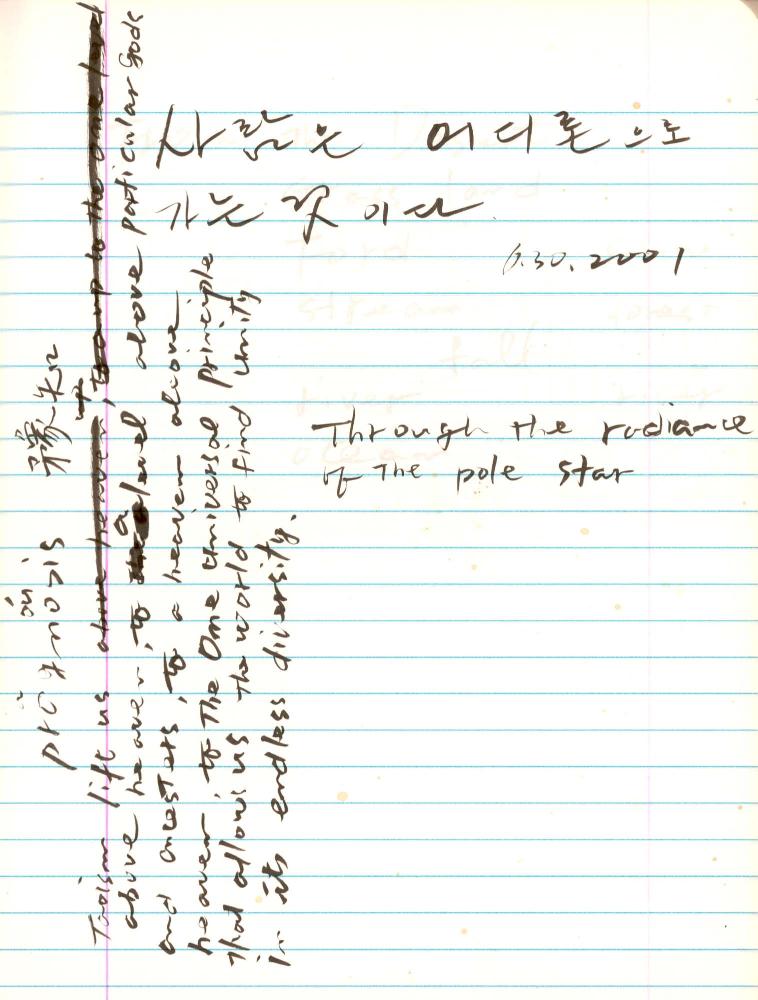 사람은 어디론으로
가는 것이다.
6.30.2001
Through the radiance
of The pole star
prognosis 豫知
Taoism lift us above heaven, up to the one level
above heaven, to a level above particular Gods
and ancesters, to a heaven above
heaven, to The One Universal Principle
That allows us the world to find Unity
in its endless diversity.